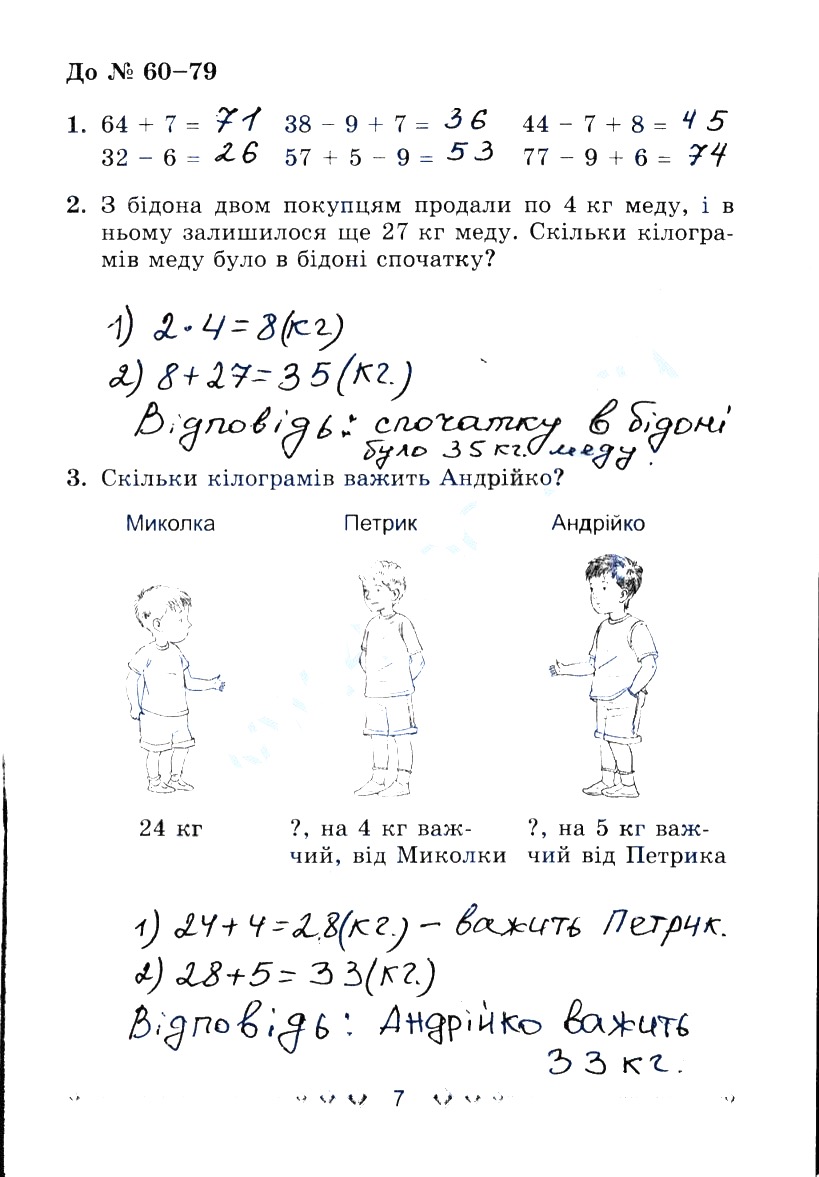 До № 60–79
1. 64 + 7 = 71 38 – 9 + 7 = 36 44 – 7 + 8 = 45
32 – 6 = 26 57 + 5 – 9 = 53 77 – 9 + 6 = 74
2. З бідона двом покупцям продали по 4 кг меду, і в
ньому залишилося ще 27 кг меду. Скільки кілогра-
мів меду було в бідоні спочатку?
1) 2·4=8(кг)
2) 8+27=35(кг.)
Відповідь: спочатку в бідоні
було 35 кг. меду.
3. Скільки кілограмів важить Андрійко?
Миколка Петрик Андрійко
24 кг ?, на 4 кг важ- ?, на 5 кг важ-
чий, від Миколки чий від Петрика
1) 24+4=28(кг.) – важить Петрик.
2) 28+5=33(кг.)
Відповідь: Андрійко важить
33 кг.
7